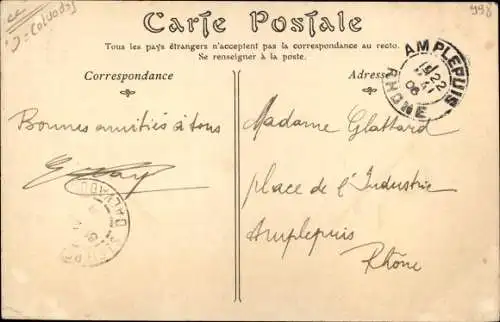 Carte Postale
Tous les pays étrangers n'acceptent pas la correspondance au recto.
Se renseigner à la poste.
Correspondance
Adresse
998
(Calvados)
AMPLEPUIS
22
06
RHONE
Bonnes amitiés à tous
CALVADOS
Madame Glattard
place de l'Industrie
Amplepuis
Rhône